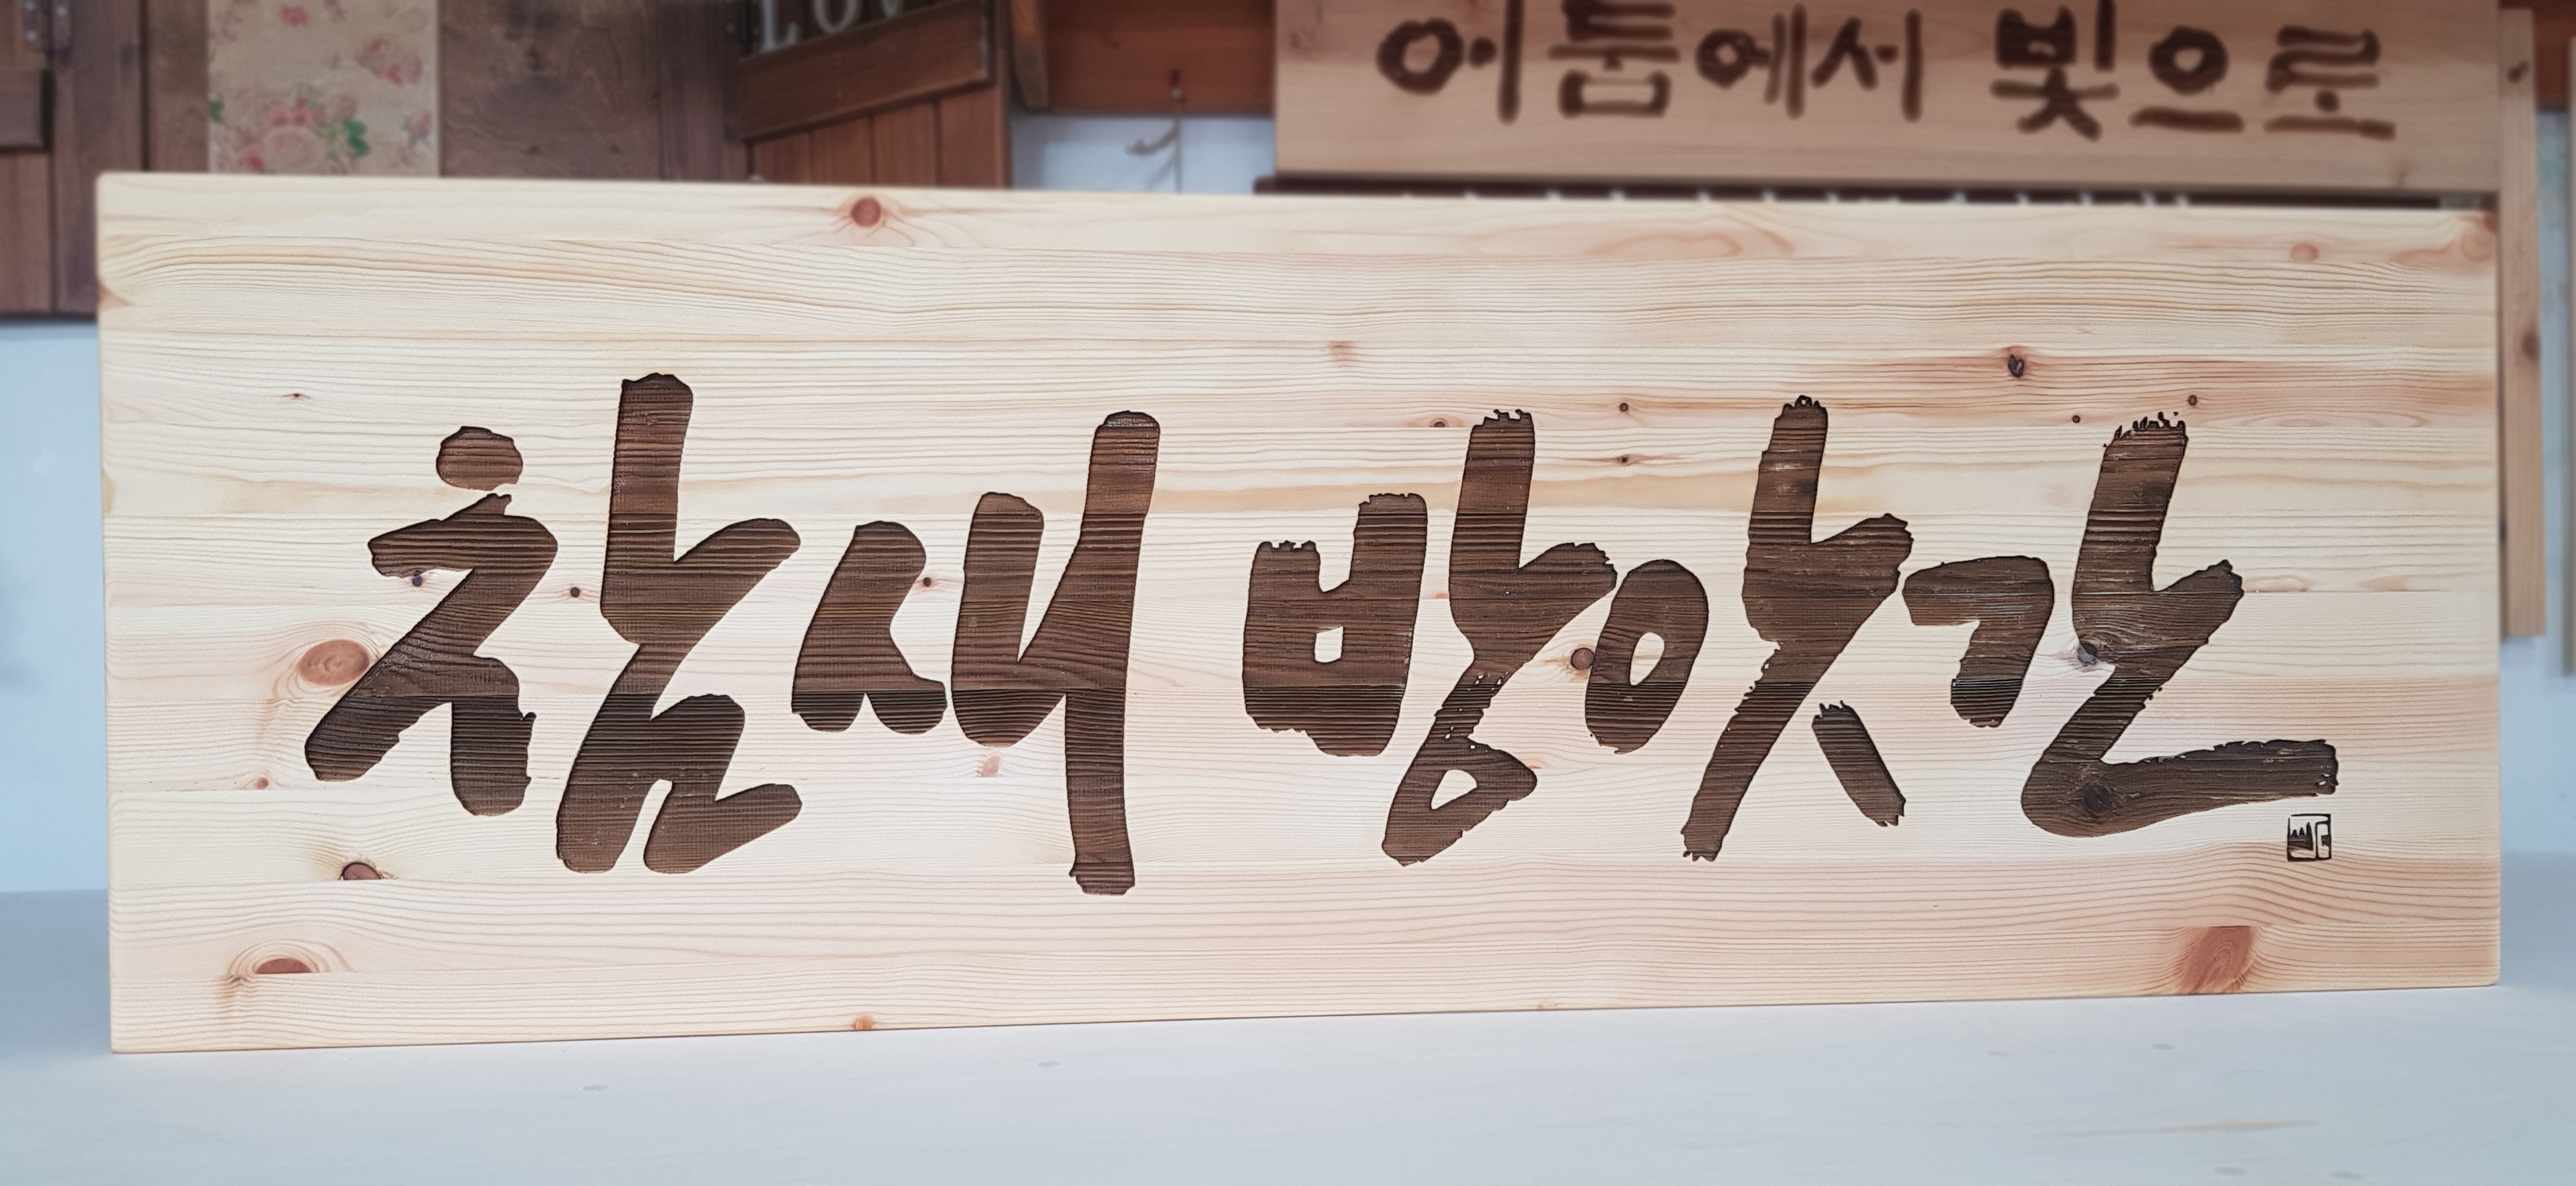 LOV
어둠에서 빛으로
참새 방앗간